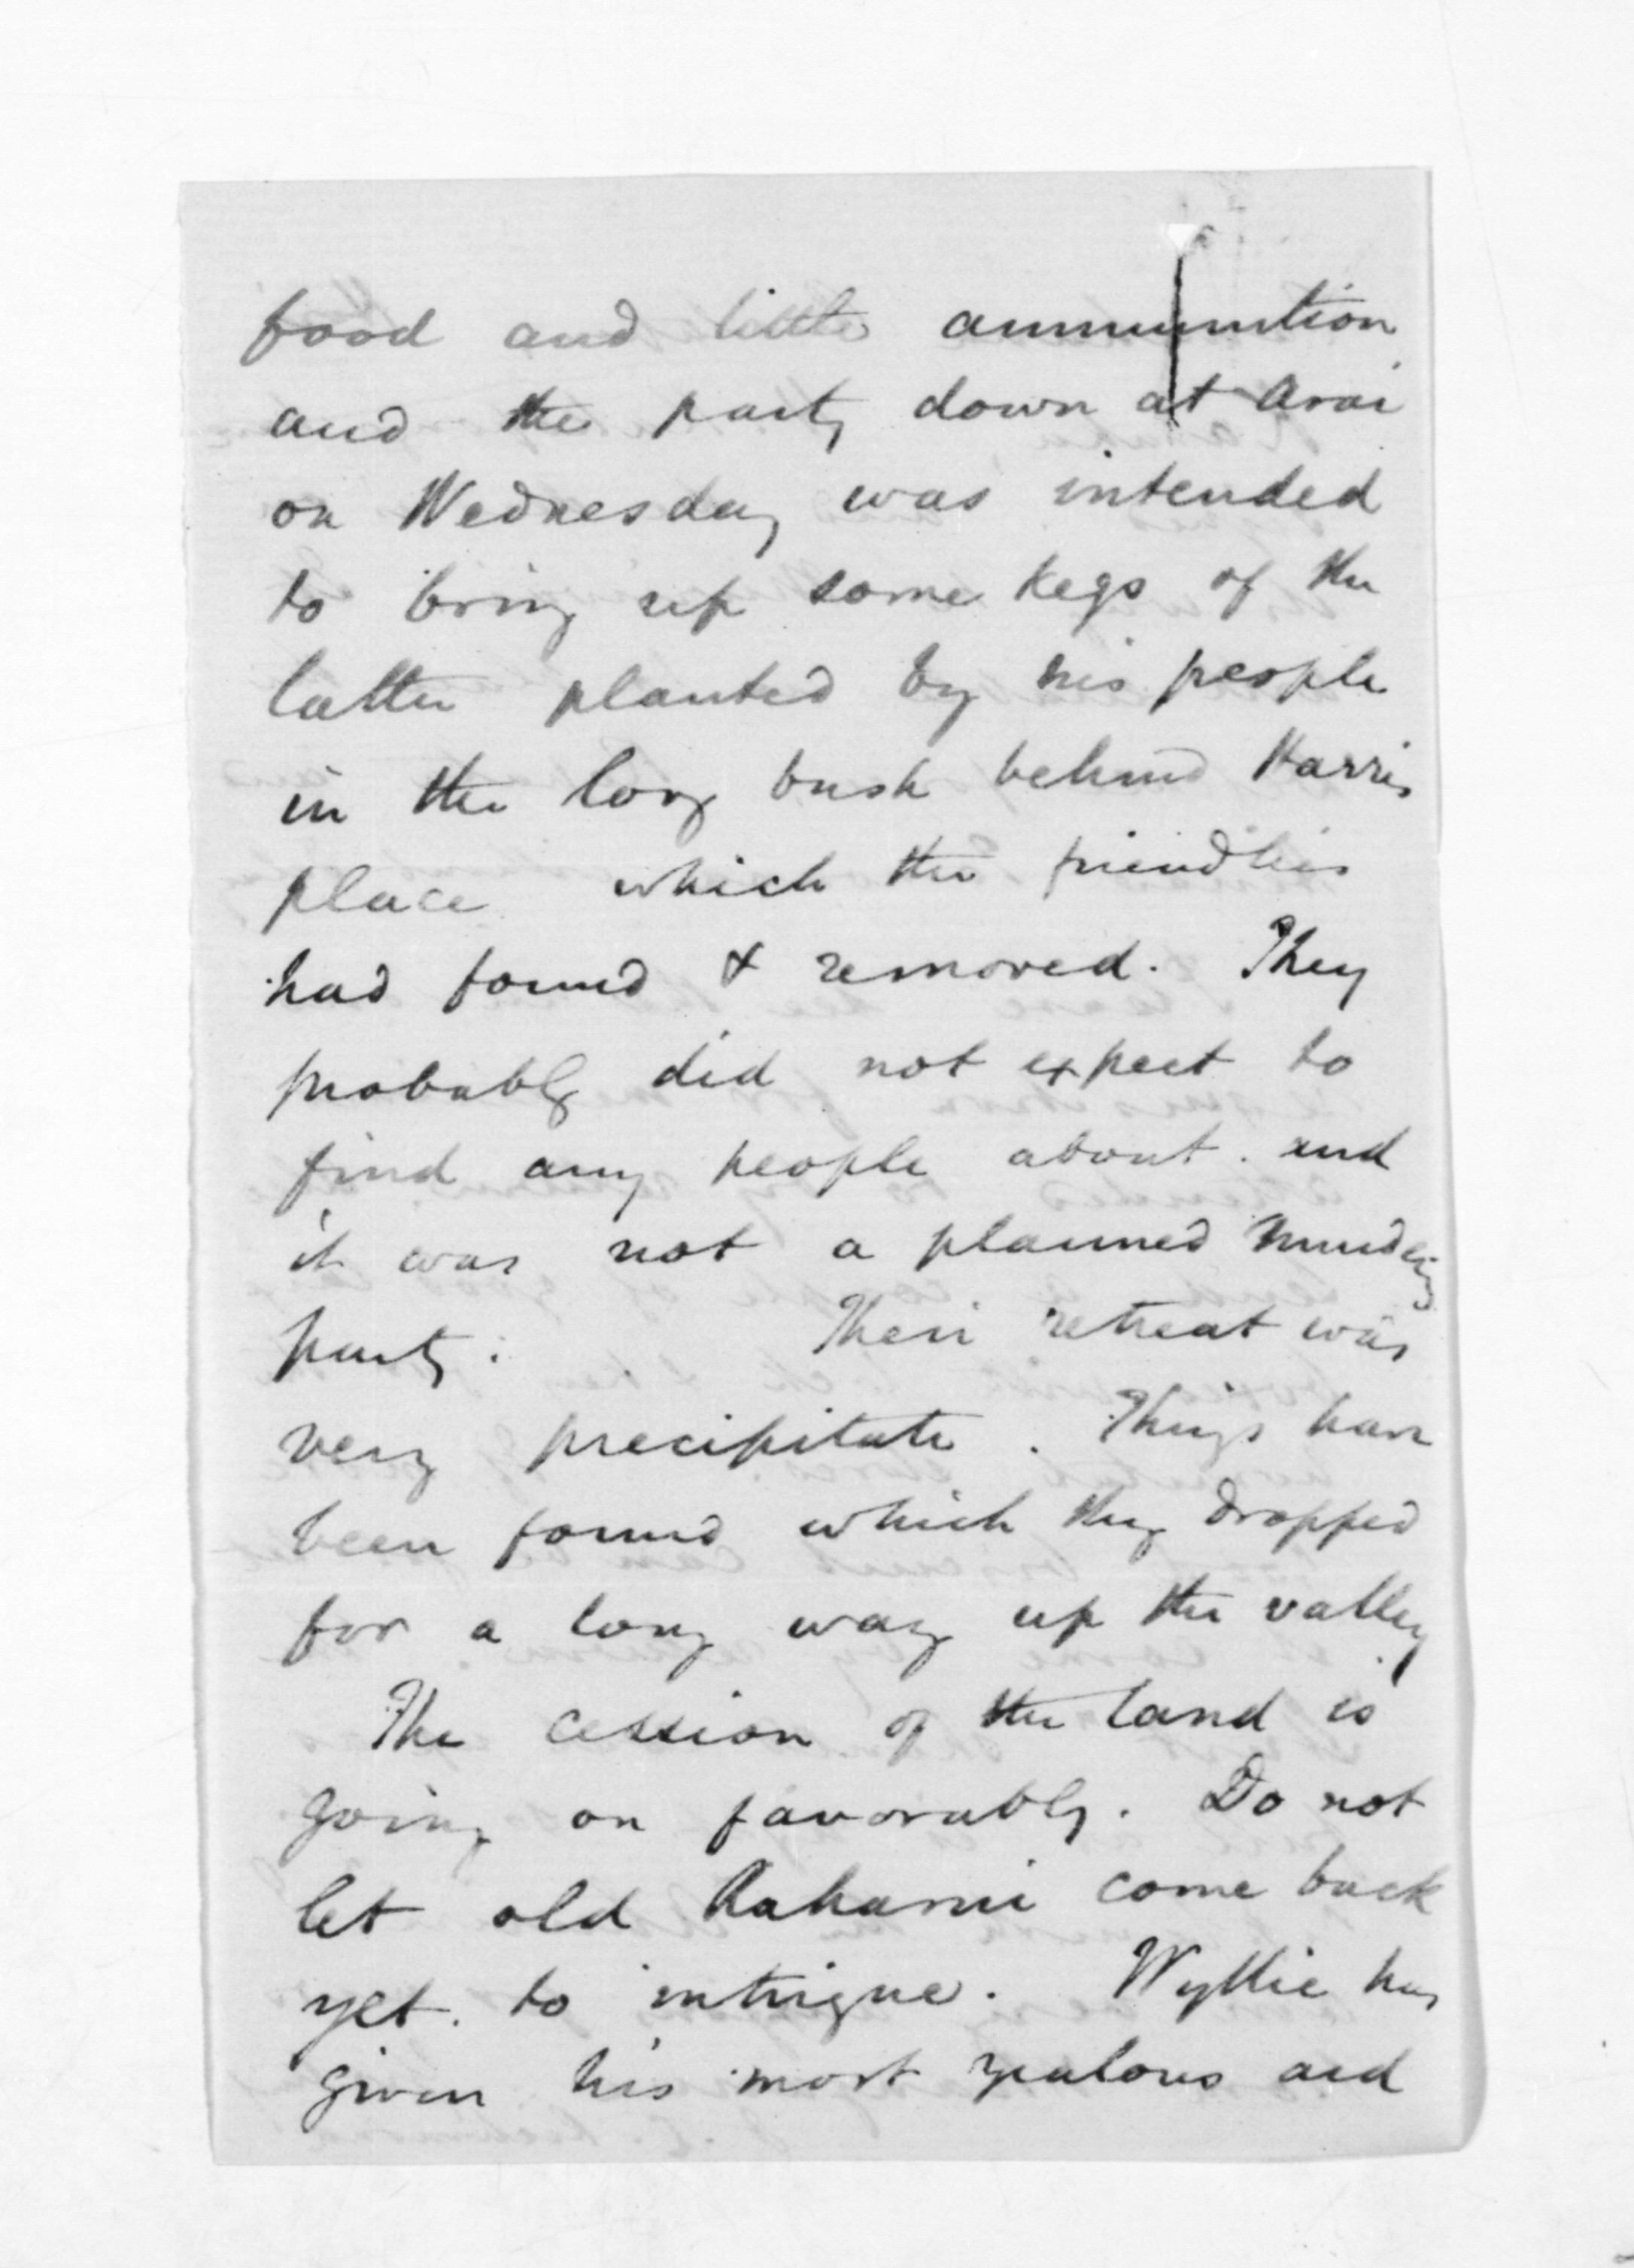 food and little ammunition
and the party down at Arai
on Wednesday was intended
to bring up some kegs of the
latter planted by his people
in the long bush behind Harris
place which the friendlies
had found & removed. They
probably did not expect to
find any people about. and
it was not a planned murdering
party. Their retreat was
very precipitate. Things have
been found which they dropped
for a long way up the valley
The cession of the land is
going on favorably. Do not
let old come back
yet. to intrigue. Wyllie has
given his most zealous aid